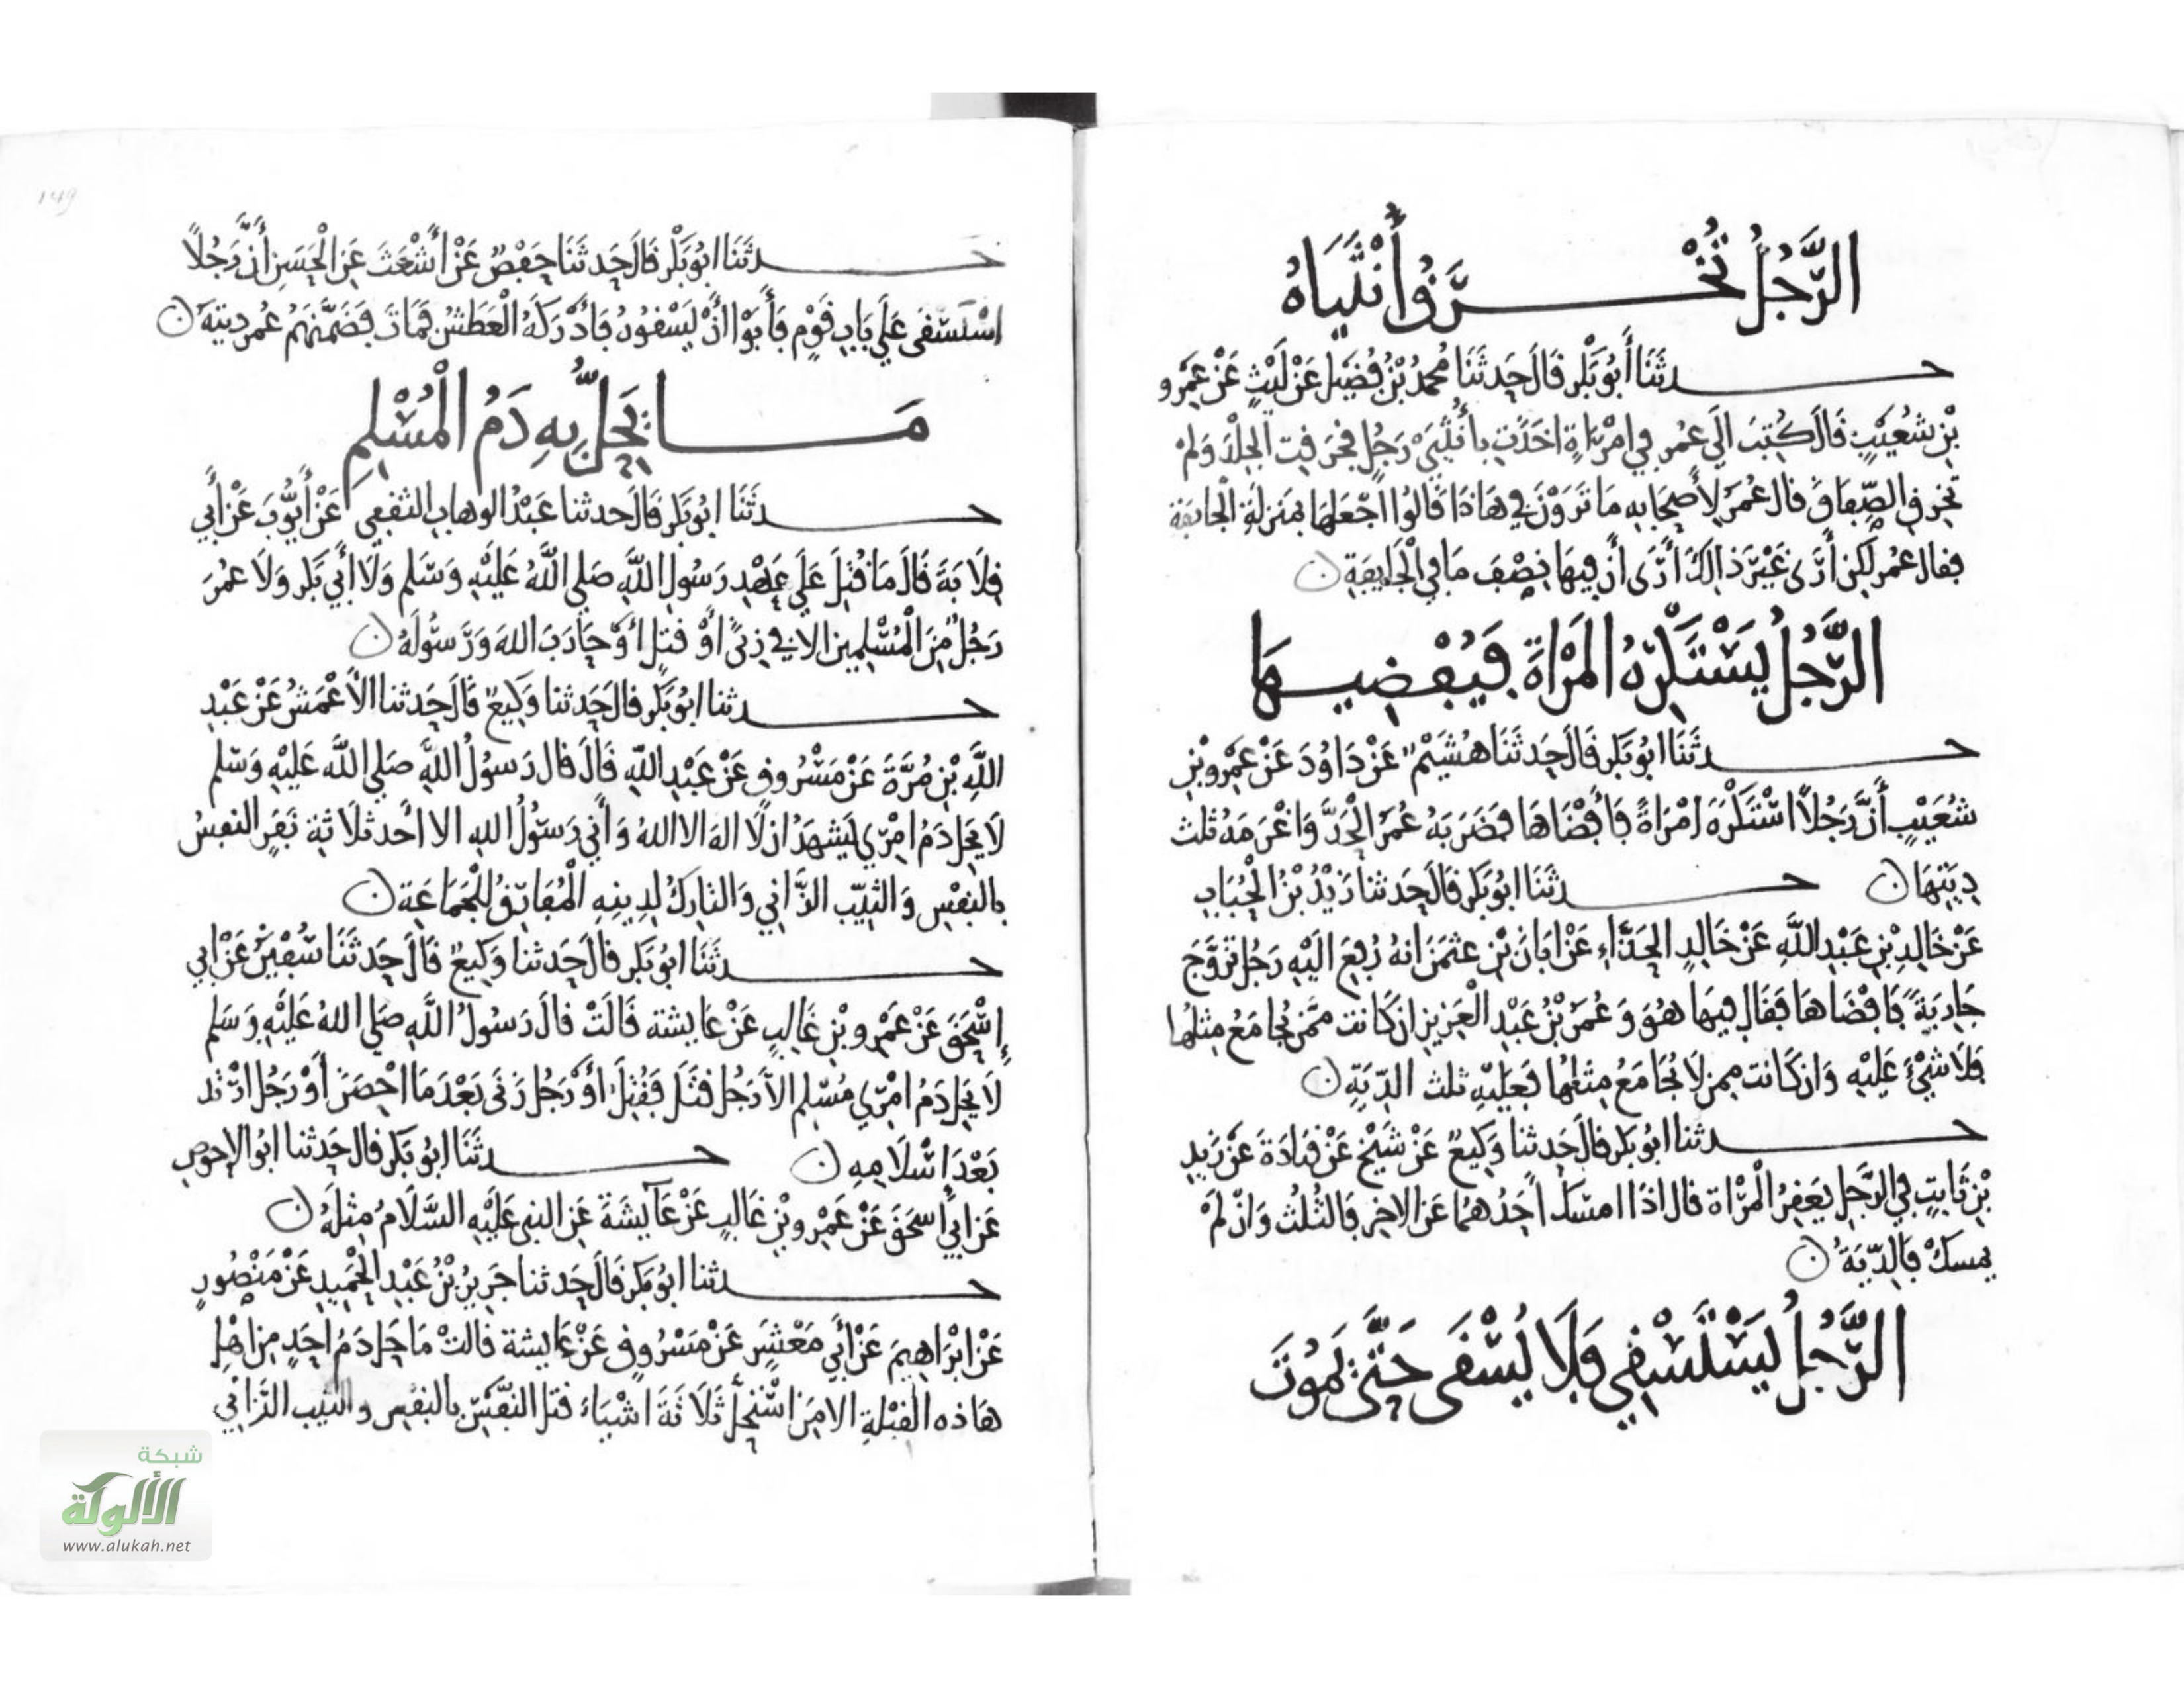 الرَّجُلُ تُخْرَقُ أُنْثَيَاهُ
حدثَنَا أَبُو بَكْر قَالَ حَدثَنَا مُحمدُ بْنُ فُضَيْل عَنْ لَيْثٍ عَنْ عَمْرو
بْنِ شعَيْبٍ قَالَ كُتِبَ الَى عُمر في امْرَاةٍ اخَذَتْ بأُنْثَيَيْ رَجُلٍ فخرَقت الجِلْدَ وَلمْ
تخرق الصِّفاقَ قال عُمَرُ لأَصحَابه مَا تَرَوْنَ في هَاذَا قَالُوا اجْعَلهَا بمَنزلَةِ الْجايفَة
فقال عُمر لَكِن أَرَى غَيْرَ ذالكَ أَرَى أَنَّ فِيهَا نِصْفَ مَا في الْجَايِفَةِ ن
الرَّجُلُ يَسْتَكْرِهُ الْمَرْأةَ فَيُفْضِيهَا
حدثَنَا ابُو بَكر قَالَ حَدثَنَا هُشَيْمٌ عَنْ دَاوُدَ عَنْ عَمْرو بْنِ
شُعَيْبٍ أَنَّ رَجُلًا اسْتَكْرَهَ امْرَاةً فَأَفْضَاهَا فَضَرَبَهُ عُمَرُ الْحَدَّ وَاغْرَمَهُ ثلث
دِيَتِهَا ن حدثَنَا ابُو بَكر قَالَ حَدثنا زَيْدُ بْنُ الْحُبَابِ
عَنْ خَالِدِ بْنِ عَبْدِ اللَّهِ عَنْ خَالدٍ الحَذَّاءِ عَنْ ابَانَ بْنِ عثمَنَ انهُ رُفِعَ الَيْهِ رَجُل تزَوَّجَ
جَارِيَةً فَافْضَاهَا فقَال فِيهَا هُوَ وَعُمَرُ بْنُ عَبْدِ الْعَزِيزِ ان كَانت مِمَّن يُجامَعُ مِثلُها
فَلَا شَيْءَ عَلَيْهِ وَان كَانت مِمن لَا يُجَامَعُ مِثلُهَا فَعَلَيْهِ ثلث الدِّيَةِ ن
حدثنا ابُو بَكر قَالَ حَدثنا وَكِيعٌ عَنْ شَيْخٍ عَنْ قتَادَةَ عَنْ زَيدِ
بْنِ ثَابِتٍ في الرَّجلِ يَعقِرُ الْمَرْاة قال اذَا امسَكَ أَحَدُهُمَا عَن الاخَر فَالثُلُث وَانْ لَمْ
يمسكْ فَالدِّيَةُ ن
الرَّجُلُ يَسْتَسْقِي فَلَا يُسْقَى حَتَّى يَمُوتَ
149
حدثَنَا ابُو بَكْر قَالَ حَدثَنَا حَفْصٌ عَنْ أَشْعَثَ عَنِ الْحَسَنِ أَنَّ رَجُلًا
اسْتَسْقَى عَلَى بَابِ قَوْمٍ فَأَبَوْا أَنْ يَسْقُوهُ فَأَدْرَكَهُ الْعَطَشُ فَمَاتَ فَضَمَّنَهُمْ عُمر دِيَتَهُ ن
مَا يَحِلُّ بِهِ دَمُ الْمُسْلِمِ
حدثَنَا ابُو بَكر قَالَ حدثنا عَبْدُ الوهابِ الثقفي عَنْ أَيُّوبَ عَنْ أَبِي
قِلَابَةَ قَالَ مَا قُتِلَ عَلَى عَهْدِ رَسُولِ اللَّهِ صَلى اللَّهُ عَلَيْهِ وَسَلم وَلَا أَبِي بَكْر وَلَا عُمَرَ
رَجُلٌ مِنَ الْمُسْلِمِينَ الا في زِنًى أَوْ قتل أَوْ حَارَبَ اللهَ وَرَسُولَهُ ن
حدثنا ابُو بَكر قالَ حَدثنا وَكِيعٌ قَالَ حَدثنا الأَعْمَشُ عَنْ عَبْدِ
اللَّهِ بْنِ مُرَّةَ عَنْ مَسْرُوقٍ عَنْ عَبْدِ اللَّهِ قَالَ قال رَسولُ اللَّهِ صَلى اللَّهُ عَلَيْهِ وَسَلم
لَا يَحِل دَمُ امْرِي يَشهَدُ ان لَا الهَ الا اللهُ وَأَني رَسولُ اللهِ الا أَحد ثَلَاثةِ نَفَرٍ النفسُ
بالنفْسِ وَالثيِّب الزَّاني وَالتارِكُ لِدِينِهِ الْمُفَارِقُ لِلْجَمَاعَةِ ن
حدثَنَا ابُو بَكر قَالَ حَدثنا وَكِيعٌ قَالَ حَدثَنَا سُفْيَنُ عَنْ ابي
إِسْحَقَ عَنْ عَمْرِو بْنِ غَالِبٍ عَنْ عَايشة قَالَتْ قال رَسولُ اللَّهِ صَلى اللهُ عَلَيْهِ وَسَلم
لَا يَحِل دَمُ امْرِي مُسْلِم الأَّ رَجُل قَتَلَ فَقُتِلَ أَوْ رَجُل زَنَى بَعْدَ مَا احْصِنَ أَوْ رَجُل ارْتد
بَعْدَ اسْلَامِهِ ن حدثَنَا ابُو بَكر قَال حَدثنا ابُو الاحوَصِ
عَن ابي اسحَقَ عَنْ عَمْرو بْنِ غَالبٍ عَنْ عَايشَةَ عَنِ النبي عَلَيْهِ السَّلَامُ مِثلَهُ ن
حدثنا ابُو بَكر قَالَ حَدثنا جَرِيرُ بْنُ عَبْدِ الْحَمِيدِ عَنْ مَنْصُورٍ
عَنْ ابْرَاهِيمَ عَنْ أَبِي مَعْشَرٍ عَنْ مَسْرُوقٍ عَنْ عَايشة قالَتْ مَا حَل دَمُ احَدٍ مِن اهْلِ
هَاذه الْقبْلةِ الا مَن اسْتَحَلَّ ثَلَاثَةَ اشْيَاءَ قَتل النفْسِ بالنفْسِ والثيب الزَّاني
شبكة
الألوكة
www.alukah.net